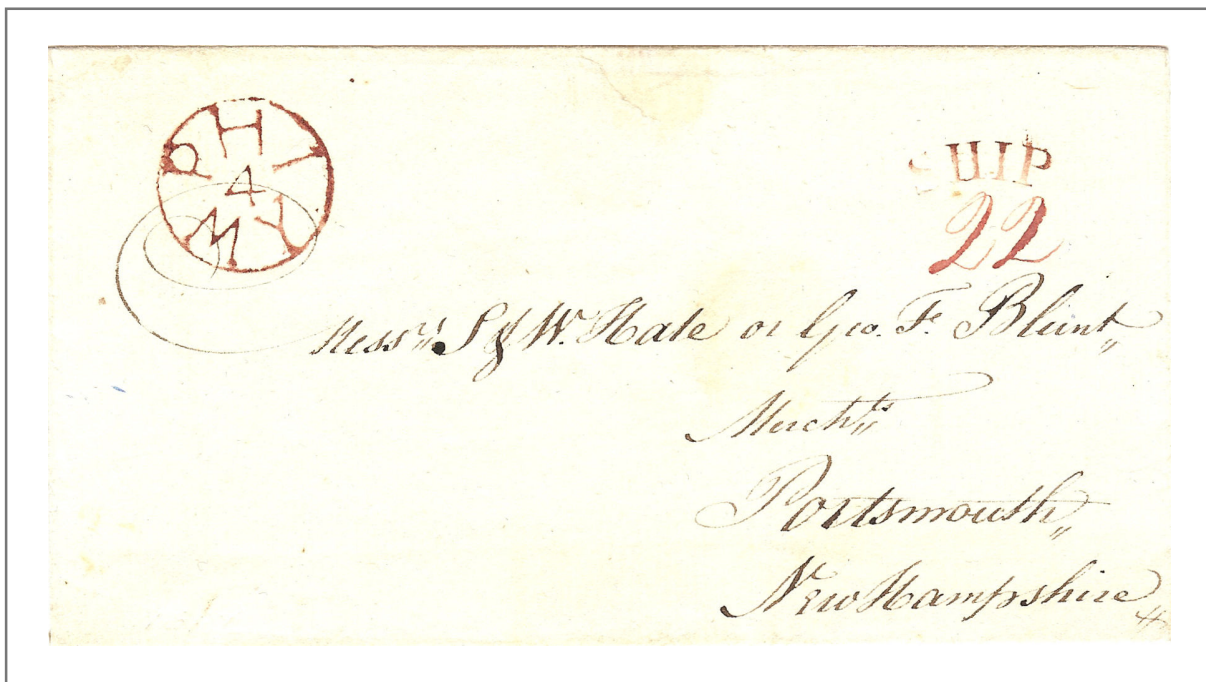 PHI
4
MY
SHIP
22
Messrs. S & W. Hale or Geo. F. Blunt
Merchts
Portsmouth
New Hampshire